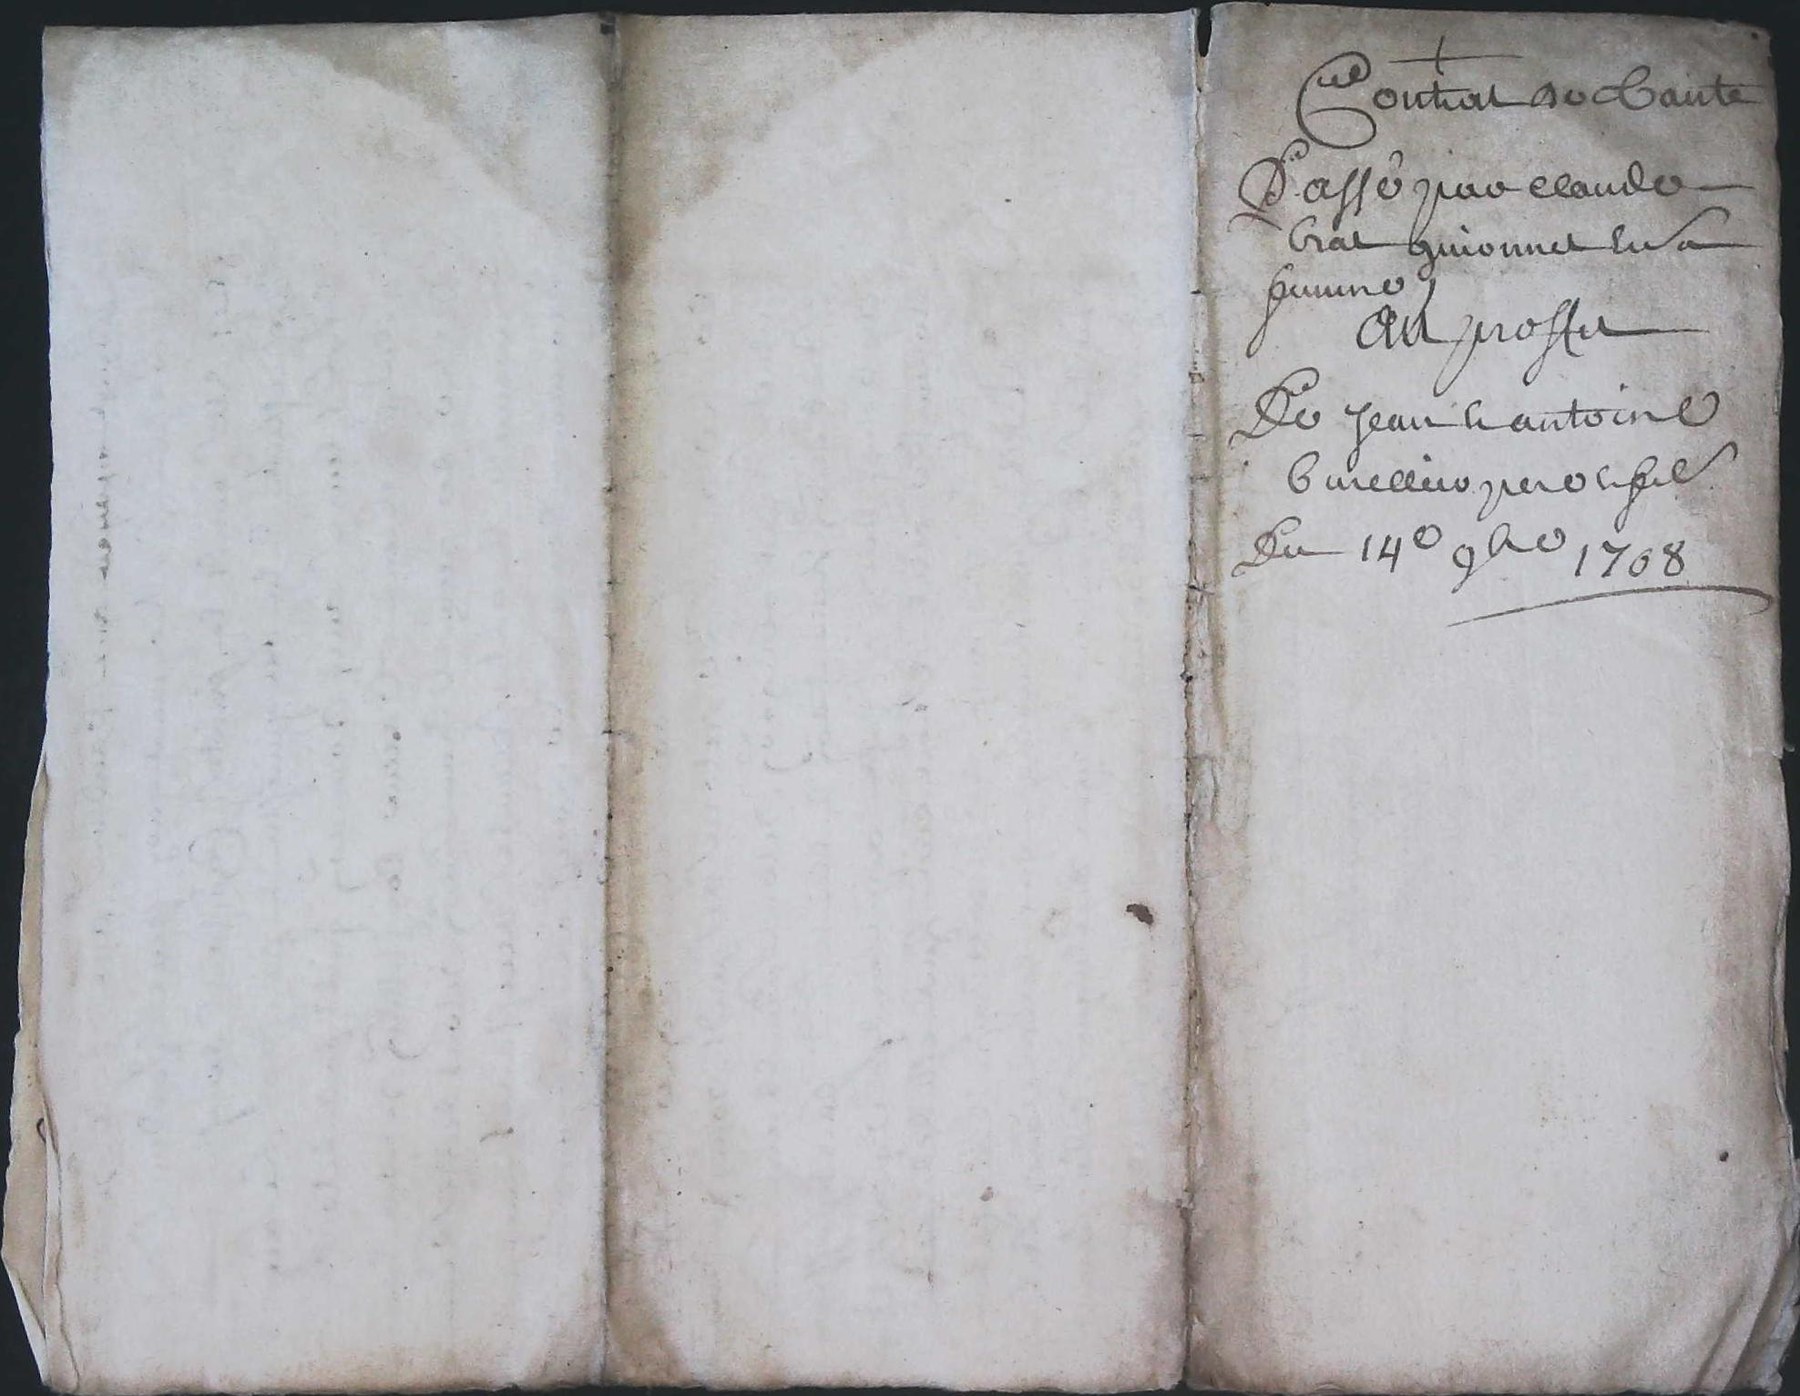 +
Contrat de Vante
Passé par claude
brat guionnet et sa
femme
Au proffit
De jean et antoine
pere et fils
Du 14e 9bre 1768